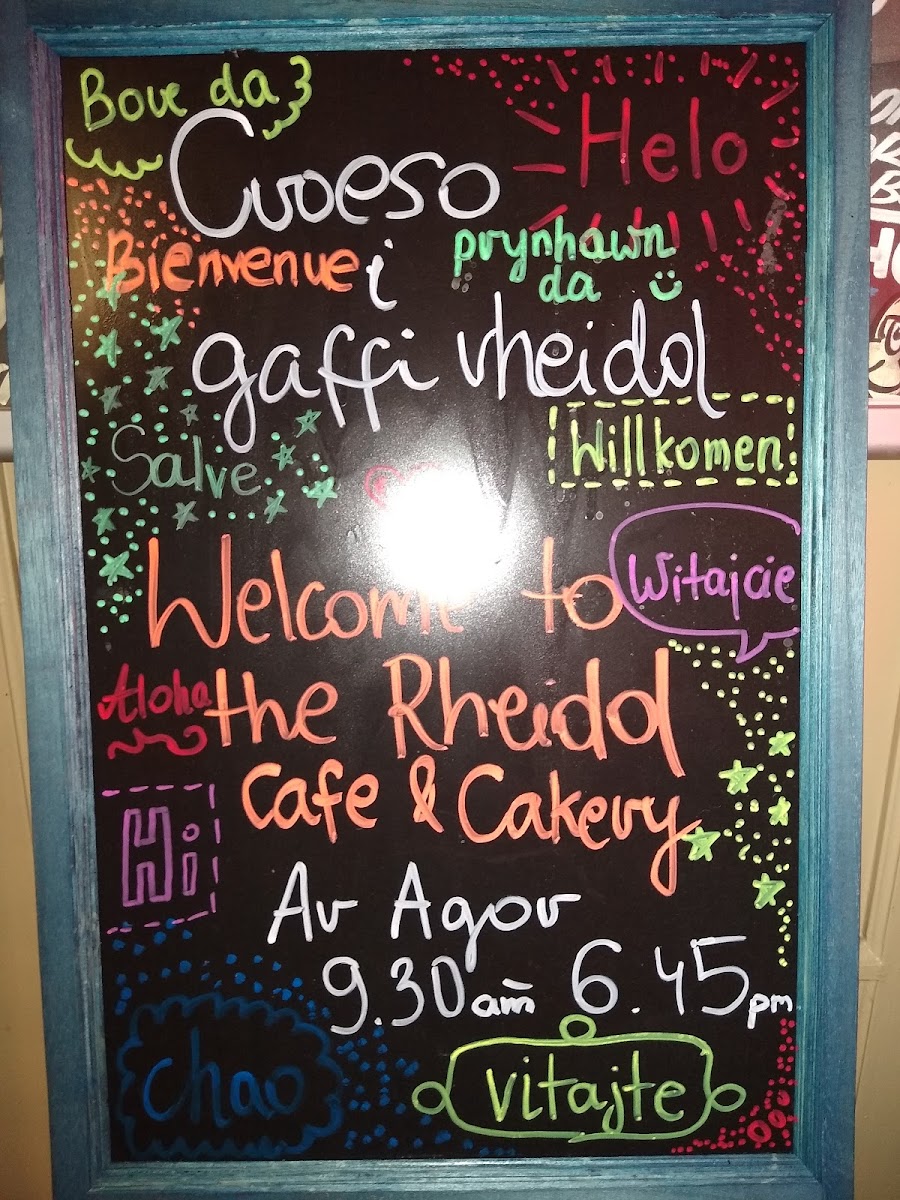 Bore da
Croeso
Helo
Bienvenue
i
prynhawn
da
gaffi rheidol
Salve
Willkomen
Welcome to
Witajcie
Aloha
the Rheidol
Cafe & Cakery
Hi
Ar Agor
9.30am 6.45pm
Chao
vitajte